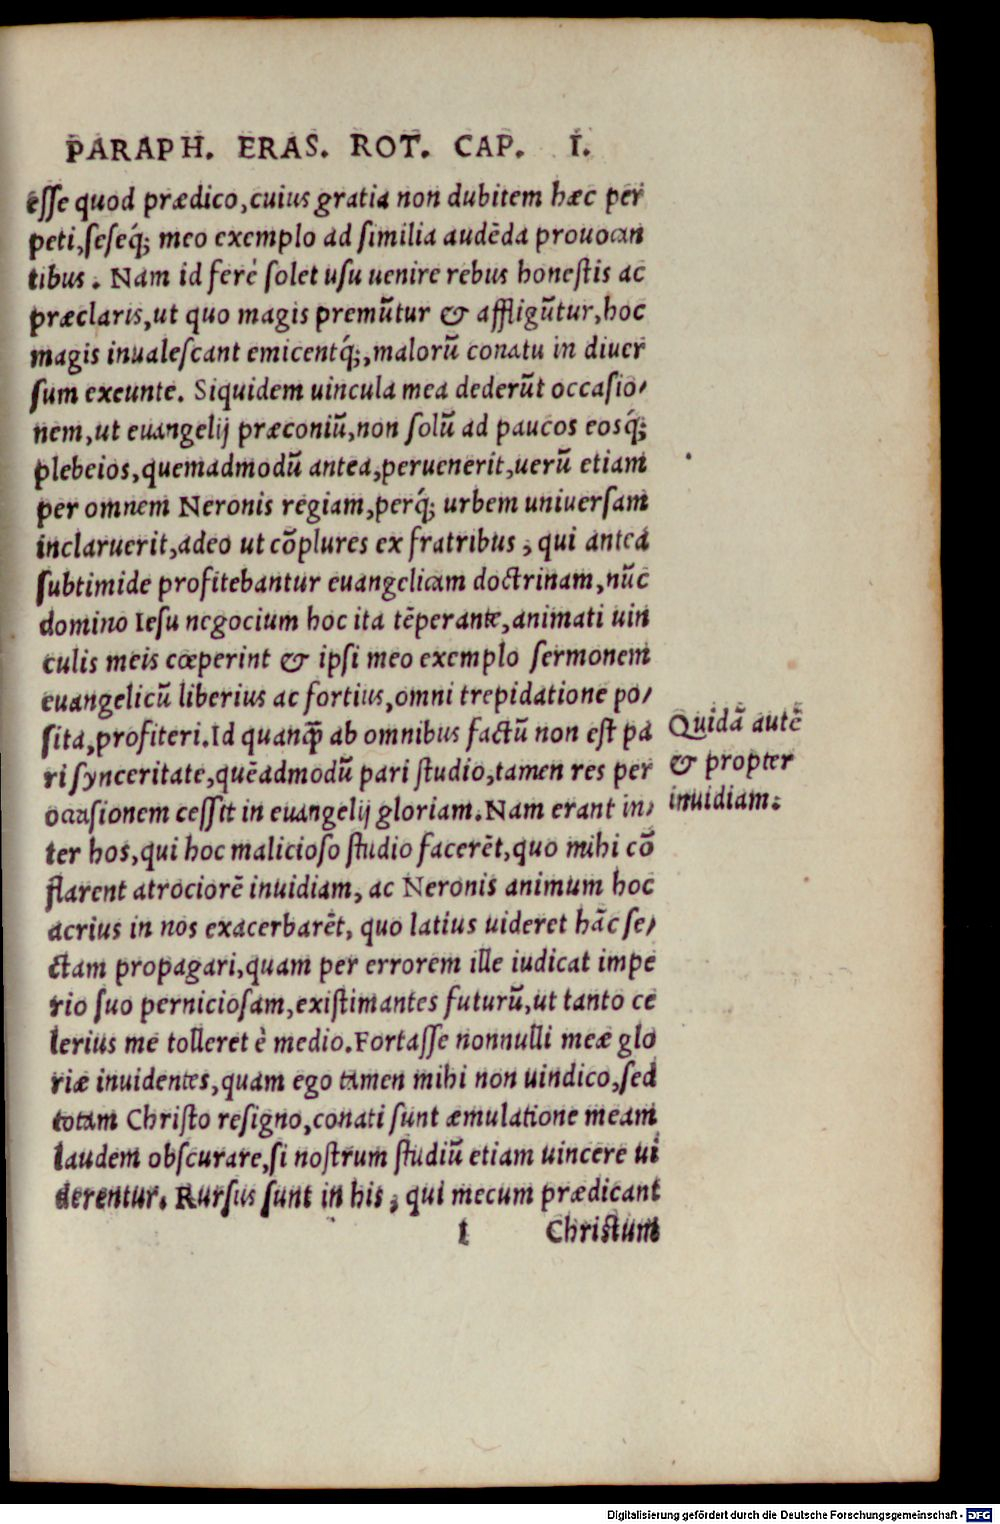 PARAPH. ERAS. ROT. CAP. I.
esse quod prædico, cuius gratia non dubitem hæc per
peti, seseq́; meo exemplo ad similia audēda prouocan
tibus. Nam id ferè solet usu uenire rebus honestis ac
præclaris, ut quo magis premūtur & affligūtur, hoc
magis inualescant emicentq́;, malorū conatu in diuer
sum exeunte. Siquidem uincula mea dederūt occasio/
nem, ut euangelij præconiū, non solū ad paucos eosq́;
plebeios, quemadmodū antea, peruenerit, uerū etiam
per omnem Neronis regiam, perq́; urbem uniuersam
inclaruerit, adeo ut cōplures ex fratribus, qui antea
subtimide profitebantur euangelicam doctrinam, nūc
domino Iesu negocium hoc ita tēperante, animati uin
culis meis cœperint & ipsi meo exemplo sermonem
euangelicū liberius ac fortius, omni trepidatione po/
sita, profiteri. Id quanꝙ̃ ab omnibus factū non est pa
ri synceritate, quēadmodū pari studio, tamen res per
occasionem cessit in euangelij gloriam. Nam erant in/
ter hos, qui hoc malicioso studio facerēt, quo mihi cō
flarent atrociorē inuidiam, ac Neronis animum hoc
acrius in nos exacerbarēt, quo latius uideret hāc se/
ctam propagari, quam per errorem ille iudicat impe
rio suo perniciosam, existimantes futurū, ut tanto ce
lerius me tolleret è medio. Fortasse nonnulli meæ glo
riæ inuidentes, quam ego tamen mihi non uindico, sed
totam Christo resigno, conati sunt æmulatione meam
laudem obscurare, si nostrum studiū etiam uincere ui
derentur. Rursus sunt in his, qui mecum prædicant
l Christum
Quidā autē
& propter
inuidiam.
Digitalisierung gefördert durch die Deutsche Forschungsgemeinschaft - DFG